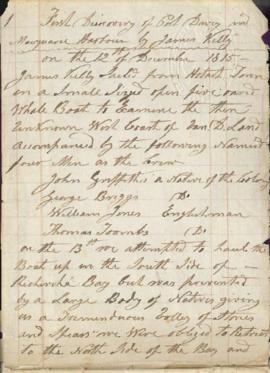 1 First Discovery of Port Davey and
Macquarie Harbour by James Kelly
on the 12th of December 1815 -
James Kelly Sail'd from Hobart Town
on a Small Sized open five oared
Whale Boat to Examine the then
Unknown West Coast of Van D. Land
accompanied by the following Named
four Men as the Crew
John Griffiths a Native of the Colony
George Briggs (Do
William Jones Englishman
Thomas Toombs (Do
on the 13th we attempted to haul the
Boat up on the South Side of -
Recherche Bay but was prevented
by a Large Body of Natives giving
us a Tremendious Volley of Stones
and Spears we Were obliged to Retreat
to the North Side of the Bay and